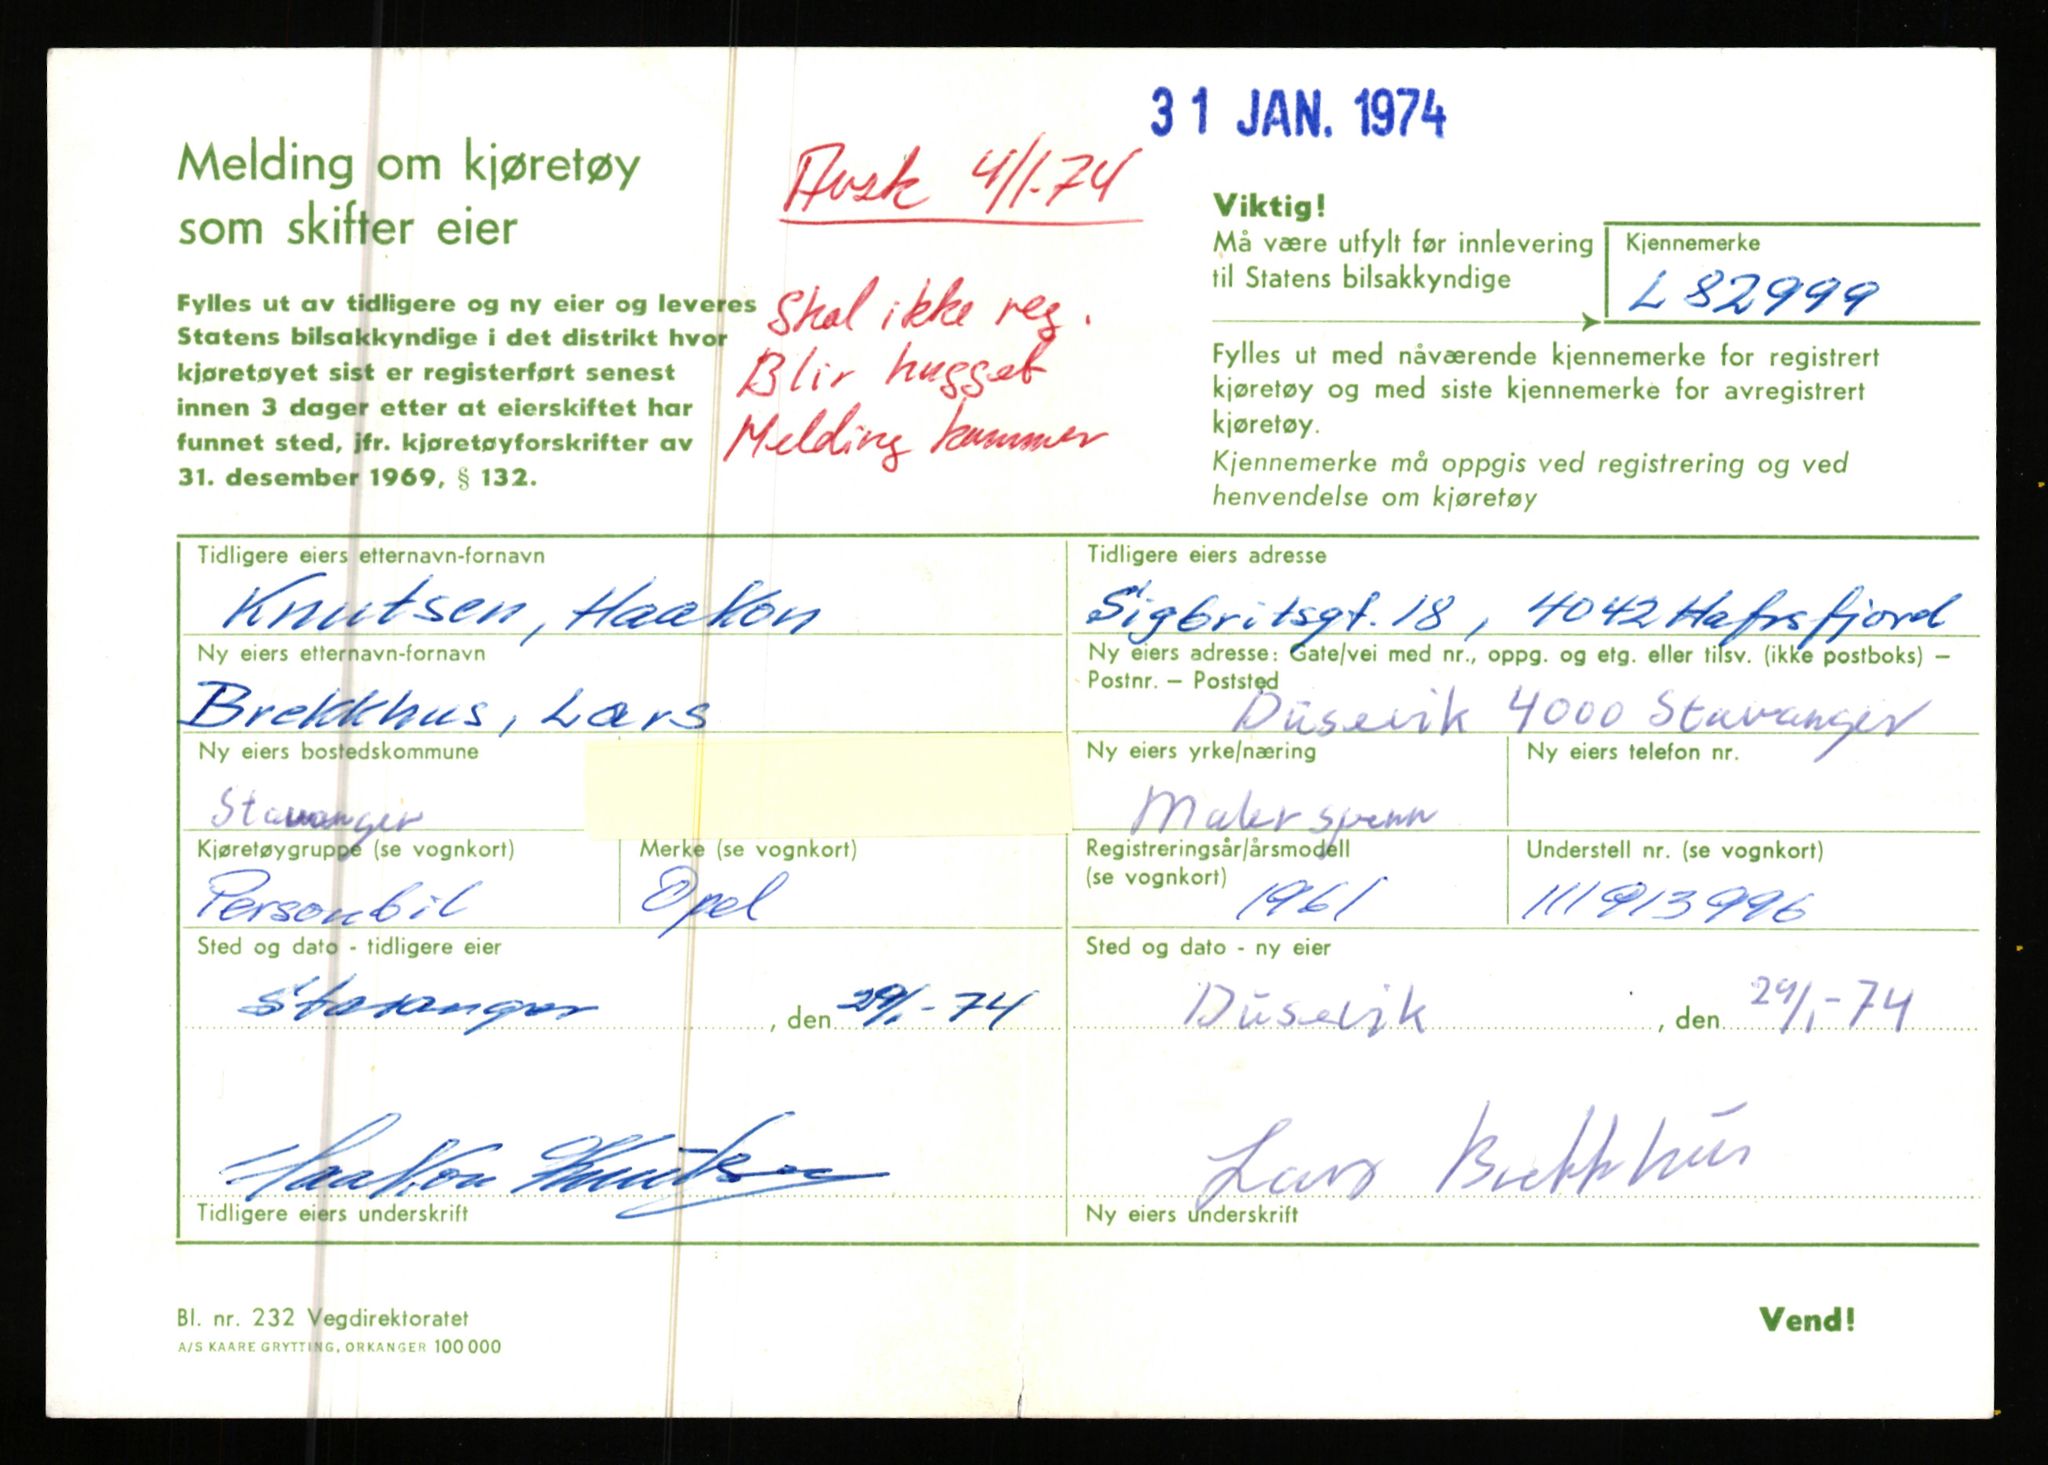 31 JAN. 1974
Melding om kjøretøy
som skifter eier
Husk 4/1-74
Skal ikke reg.
Blir hugget
Melding kommer
Fylles ut av tidligere og ny eier og leveres
Statens bilsakkyndige i det distrikt hvor
kjøretøyet sist er registerført senest
innen 3 dager etter at eierskiftet har
funnet sted, jfr. kjøretøyforskrifter av
31. desember 1969, § 132.
Viktig!
Må være utfylt før innlevering
til Statens bilsakkyndige
Kjennemerke
L 82999
Fylles ut med nåværende kjennemerke for registrert
kjøretøy og med siste kjennemerke for avregistrert
kjøretøy.
Kjennemerke må oppgis ved registrering og ved
henvendelse om kjøretøy
Tidligere eiers etternavn-fornavn
Knutsen, Haakon
Tidligere eiers adresse
Sigbritsgt. 18, 4042 Hafrsfjord
Ny eiers etternavn-fornavn
Brekkhus, Lars
Ny eiers adresse: Gate/vei med nr., oppg. og etg. eller tilsv. (ikke postboks) –
Postnr. – Poststed
Dusevik 4000 Stavanger
Ny eiers bostedskommune
Stavanger
Ny eiers yrke/næring
Malerspenn
Ny eiers telefon nr.
Kjøretøygruppe (se vognkort)
Personbil
Merke (se vognkort)
Opel
Registreringsår/årsmodell
(se vognkort)
1961
Understell nr. (se vognkort)
111913996
Sted og dato - tidligere eier
Stavanger, den 29/1-74
Sted og dato - ny eier
Dusevik, den 29/1-74
Haakon Knutsen
Tidligere eiers underskrift
Lars Brekkhus
Ny eiers underskrift
Bl. nr. 232 Vegdirektoratet
A/S KAARE GRYTTING, ORKANGER 100 000
Vend!